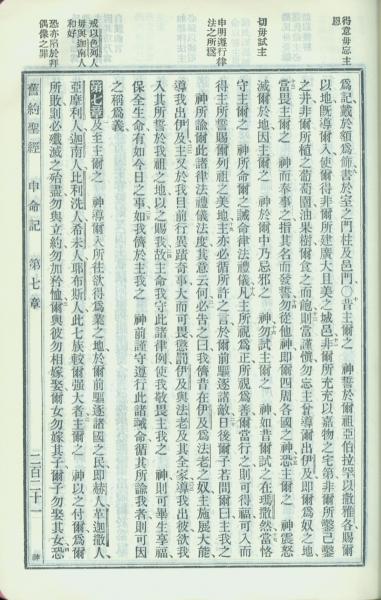 得意毋忘主
恩
切毋試主
申明遵行律
法之所為
戒以色列人
毋與迦南人
和好
恐亦陷於拜
偶像之罪
為記戴於額為飾書於室之門柱及邑門〇昔主爾之　神誓於爾祖亞伯拉罕以撒雅各賜爾
以地既導爾入使爾得非爾所建廣大且美之城邑非爾所充充以嘉物之宅第非爾所鑿已鑿
之井非爾所植之葡萄園油果樹爾食之而飽則當謹慎勿忘主曾導爾出伊及即爾為奴之地
當畏主爾之　神而奉事之指其名而發誓勿從他神即爾四周各國之神恐主爾之　神震怒
滅爾於地因主爾之　神於爾中乃忌邪之　神勿試主爾之　神如昔爾試之在瑪撒然當恪
守主爾之　神所命爾之誡命律法禮儀凡主所視為正所視為善爾當行之則可得福可入而
得主所誓賜爾列祖之美地主亦必循所許之言於爾前驅逐諸敵日後爾子若問爾曰主我之
神所諭爾此諸律法禮儀法度其意云何必告之曰我儕昔在伊及為法老之奴主施展大能
導我出伊及主又於我目前行異蹟奇事大而可畏懲罰伊及與法老及其全家導我出彼欲我
入其所誓於我祖之地以之賜我故主命我守此諸律例使我敬畏主我之　神則可畢生享福
保全生命有如今日之事如我儕於主我之　神前謹守遵行此諸誡命循其所諭我者則可因
之稱為義
第七章 及至主爾之　神導爾入所往欲得為業之地於爾前驅逐諸國之民即赫人革迦撒人
亞摩利人迦南人比利洗人希未人耶布斯人此七族較爾強大者主爾之　神以之付爾為爾
所敗則必殲滅之殆盡勿與立約勿加矜恤爾與彼勿相嫁娶爾女勿嫁其子爾子勿娶其女恐
舊約聖經　申命記　第七章　二百二十一